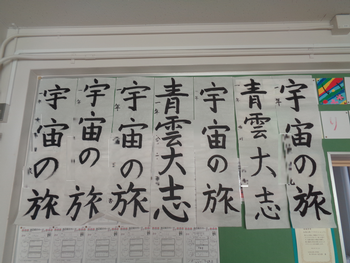 宇宙の旅
青雲大志
宇宙の旅
青雲大志
宇宙の旅
宇宙の旅
宇宙の旅